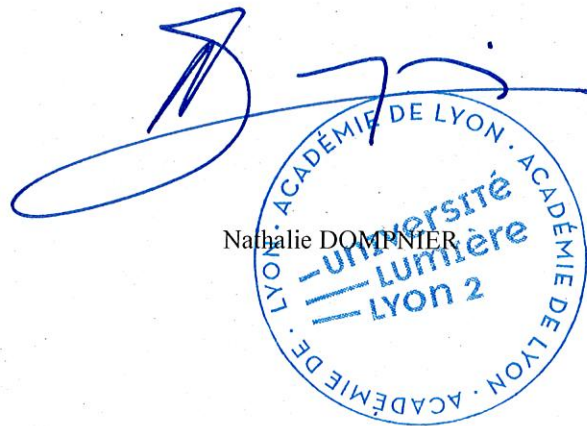 Nathalie DOMPNIER
ACADÉMIE DE LYON · ACADÉMIE DE LYON · ACADÉMIE DE LYON ·
université
LUMIère
LYON 2